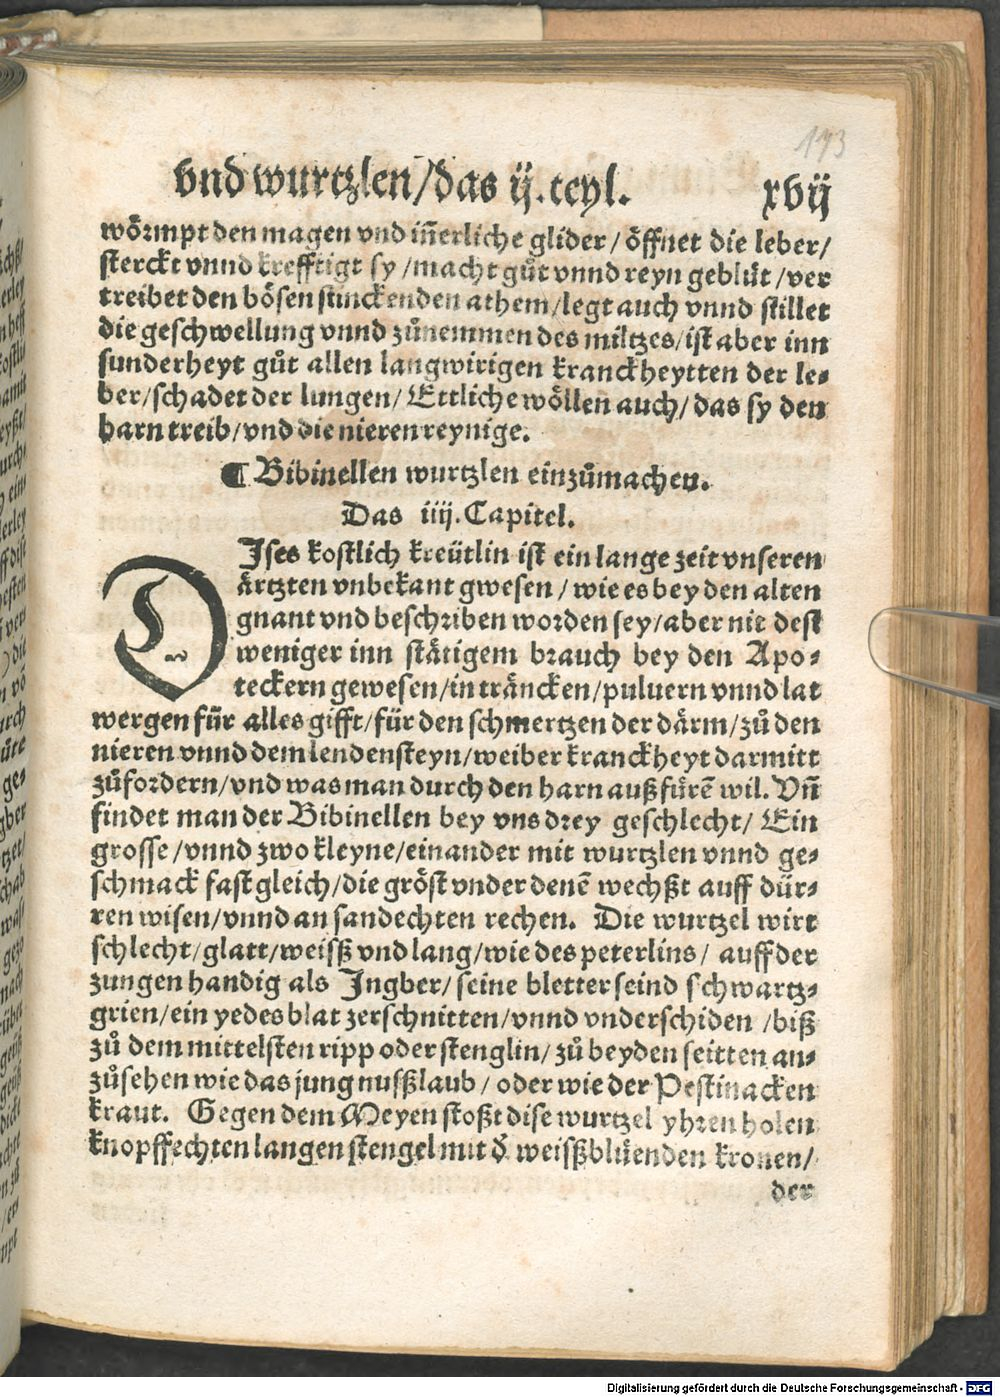 173
vnd wurtzlen/das ij.teyl. xvij
wörmpt den magen vnd iñerliche glider / öffnet die leber/
sterckt vnnd krefftigt sy /macht gůt vnnd reyn geblüt /ver
treibet den bösen stinckenden athem/legt auch vnnd stillet
die geschwellung vnnd zůnemmen des miltzes/ist aber inn
sunderheyt gůt allen langwirigen kranckheytten der le⸗
ber/schadet der lungen/ Ettliche wöllen auch/ das sy den
harn treib/vnd die nieren reynige.
¶ Bibinellen wurtzlen einzůmachen.
Das iiij. Capitel.
DIses kostlich kreütlin ist ein lange zeit vnseren
ärtzten vnbekant gwesen / wie es bey den alten
gnant vnd beschriben worden sey/aber nit dest
weniger inn stätigem brauch bey den Apo⸗
teckern gewesen/in träncken/puluern vnnd lat
wergen für alles gifft/für den schmertzen der därm/zů den
nieren vnnd dem lendensteyn/weiber kranckheyt darmitt
zůfordern/vnd was man durch den harn außfürē wil. Vñ
findet man der Bibinellen bey vns drey geschlecht/ Ein
grosse /vnnd zwo kleyne/einander mit wurtzlen vnnd ge⸗
schmack fast gleich/die gröst vnder denē wechßt auff dür⸗
ren wisen/vnnd an sandechten rechen. Die wurtzel wirt
schlecht/glatt/weisß vnd lang/wie des peterlins/ auff der
zungen handig als Ingber/seine bletter seind schwartz⸗
grien/ein yedes blat zerschnitten/vnnd vnderschiden /biß
zů dem mittelsten ripp oder stenglin/ zů beyden seitten an⸗
zůsehen wie das jung nusßlaub/ oder wie der Pestinacken
kraut. Gegen dem Meyen stoßt dise wurtzel yhren holen
knopffechten langen stengel mit ð weissßblüenden kronen/
der
Digitalisierung gefördert durch die Deutsche Forschungsgemeinschaft - DFG